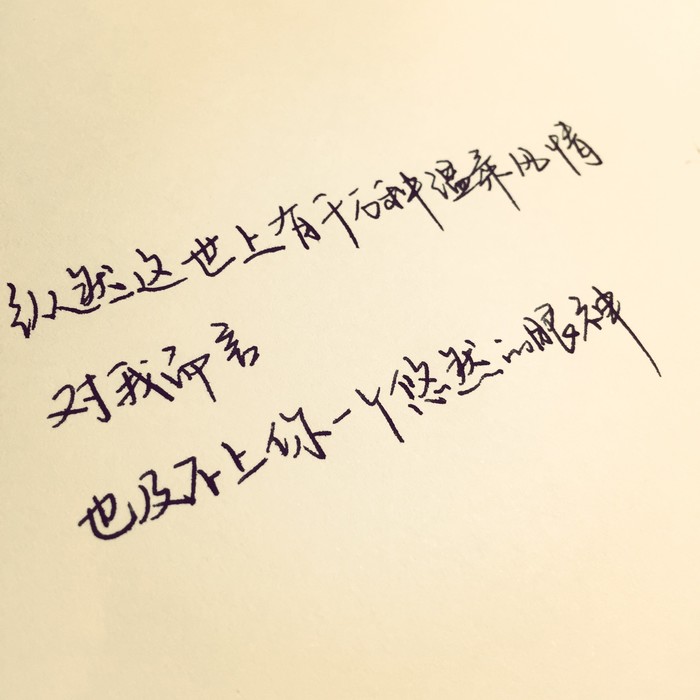 纵然这世上有千万种温柔风情
对我而言
也及不上你一个悠然的眼神